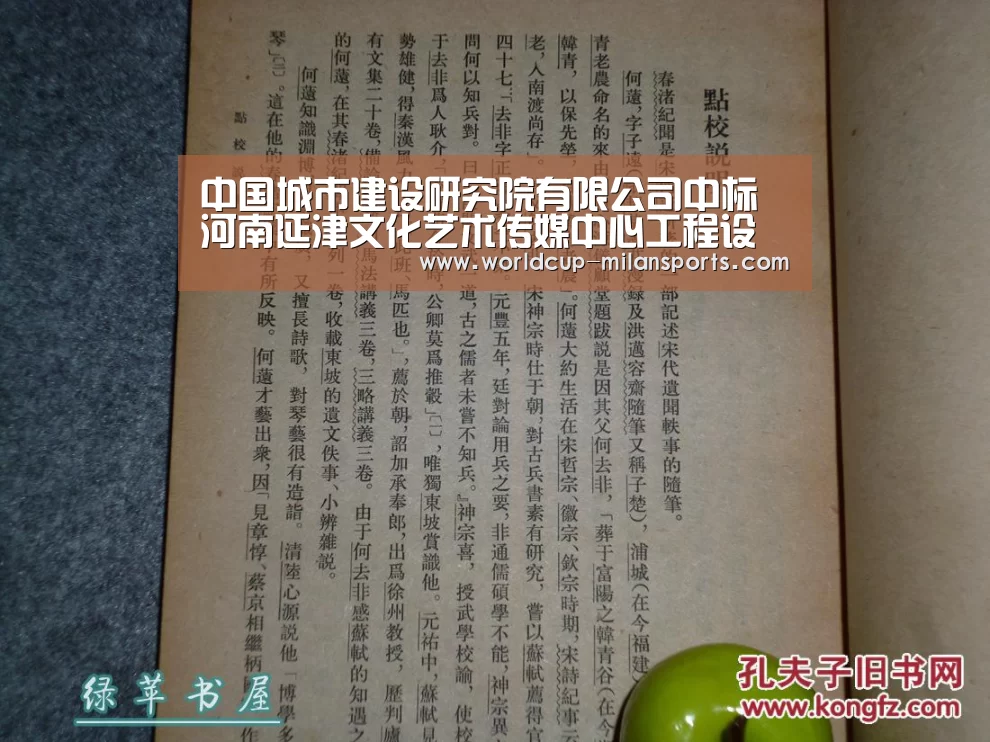 點校説明
春渚紀聞是宋
部記述宋代遺聞軼事的隨筆。
何薳,字子遠(
漫録及洪邁容齋隨筆又稱子楚),浦城(在今福建)
青老農命名的來由
願堂題跋説是因其父何去非,「葬于富陽之韓青谷(在今
韓青,以保先塋,
農」。何薳大約生活在宋哲宗、徽宗、欽宗時期,宋詩紀事云
老,人南渡尚存」。
宋神宗時仕于朝,對古兵書素有研究,嘗以蘇軾薦得官
四十七:「去非字正
元豐五年,廷對論用兵之要,非通儒碩學不能,神宗異
問何以知兵對。曰
道,古之儒者未嘗不知兵。』神宗喜,授武學校諭,使校
于去非爲人耿介,
時,公卿莫爲推轂」〔一〕,唯獨東坡賞識他。元祐中,蘇軾見
勢雄健,得秦漢風力
班、馬匹也。」,薦於朝,詔加承奉郎,出爲徐州教授,歷判廬
有文集二十卷,備
馬法講義三卷,三略講義三卷。由于何去非感蘇軾的知遇之
的何薳,在其春渚紀
列一卷,收載東坡的遺文佚事、小辨雜説。
何薳知識淵博
又擅長詩歌,對琴藝很有造詣。清陸心源説他「博學多
琴」〔二〕。這在他的春
有所反映。何薳才藝出衆,因「見章惇、蔡京相繼柄
作
點校説
中国城市建设研究院有限公司中标
河南延津文化艺术传媒中心工程设
www.worldcup-milansports.com
绿苹书屋
孔夫子旧书网
www.kongfz.com